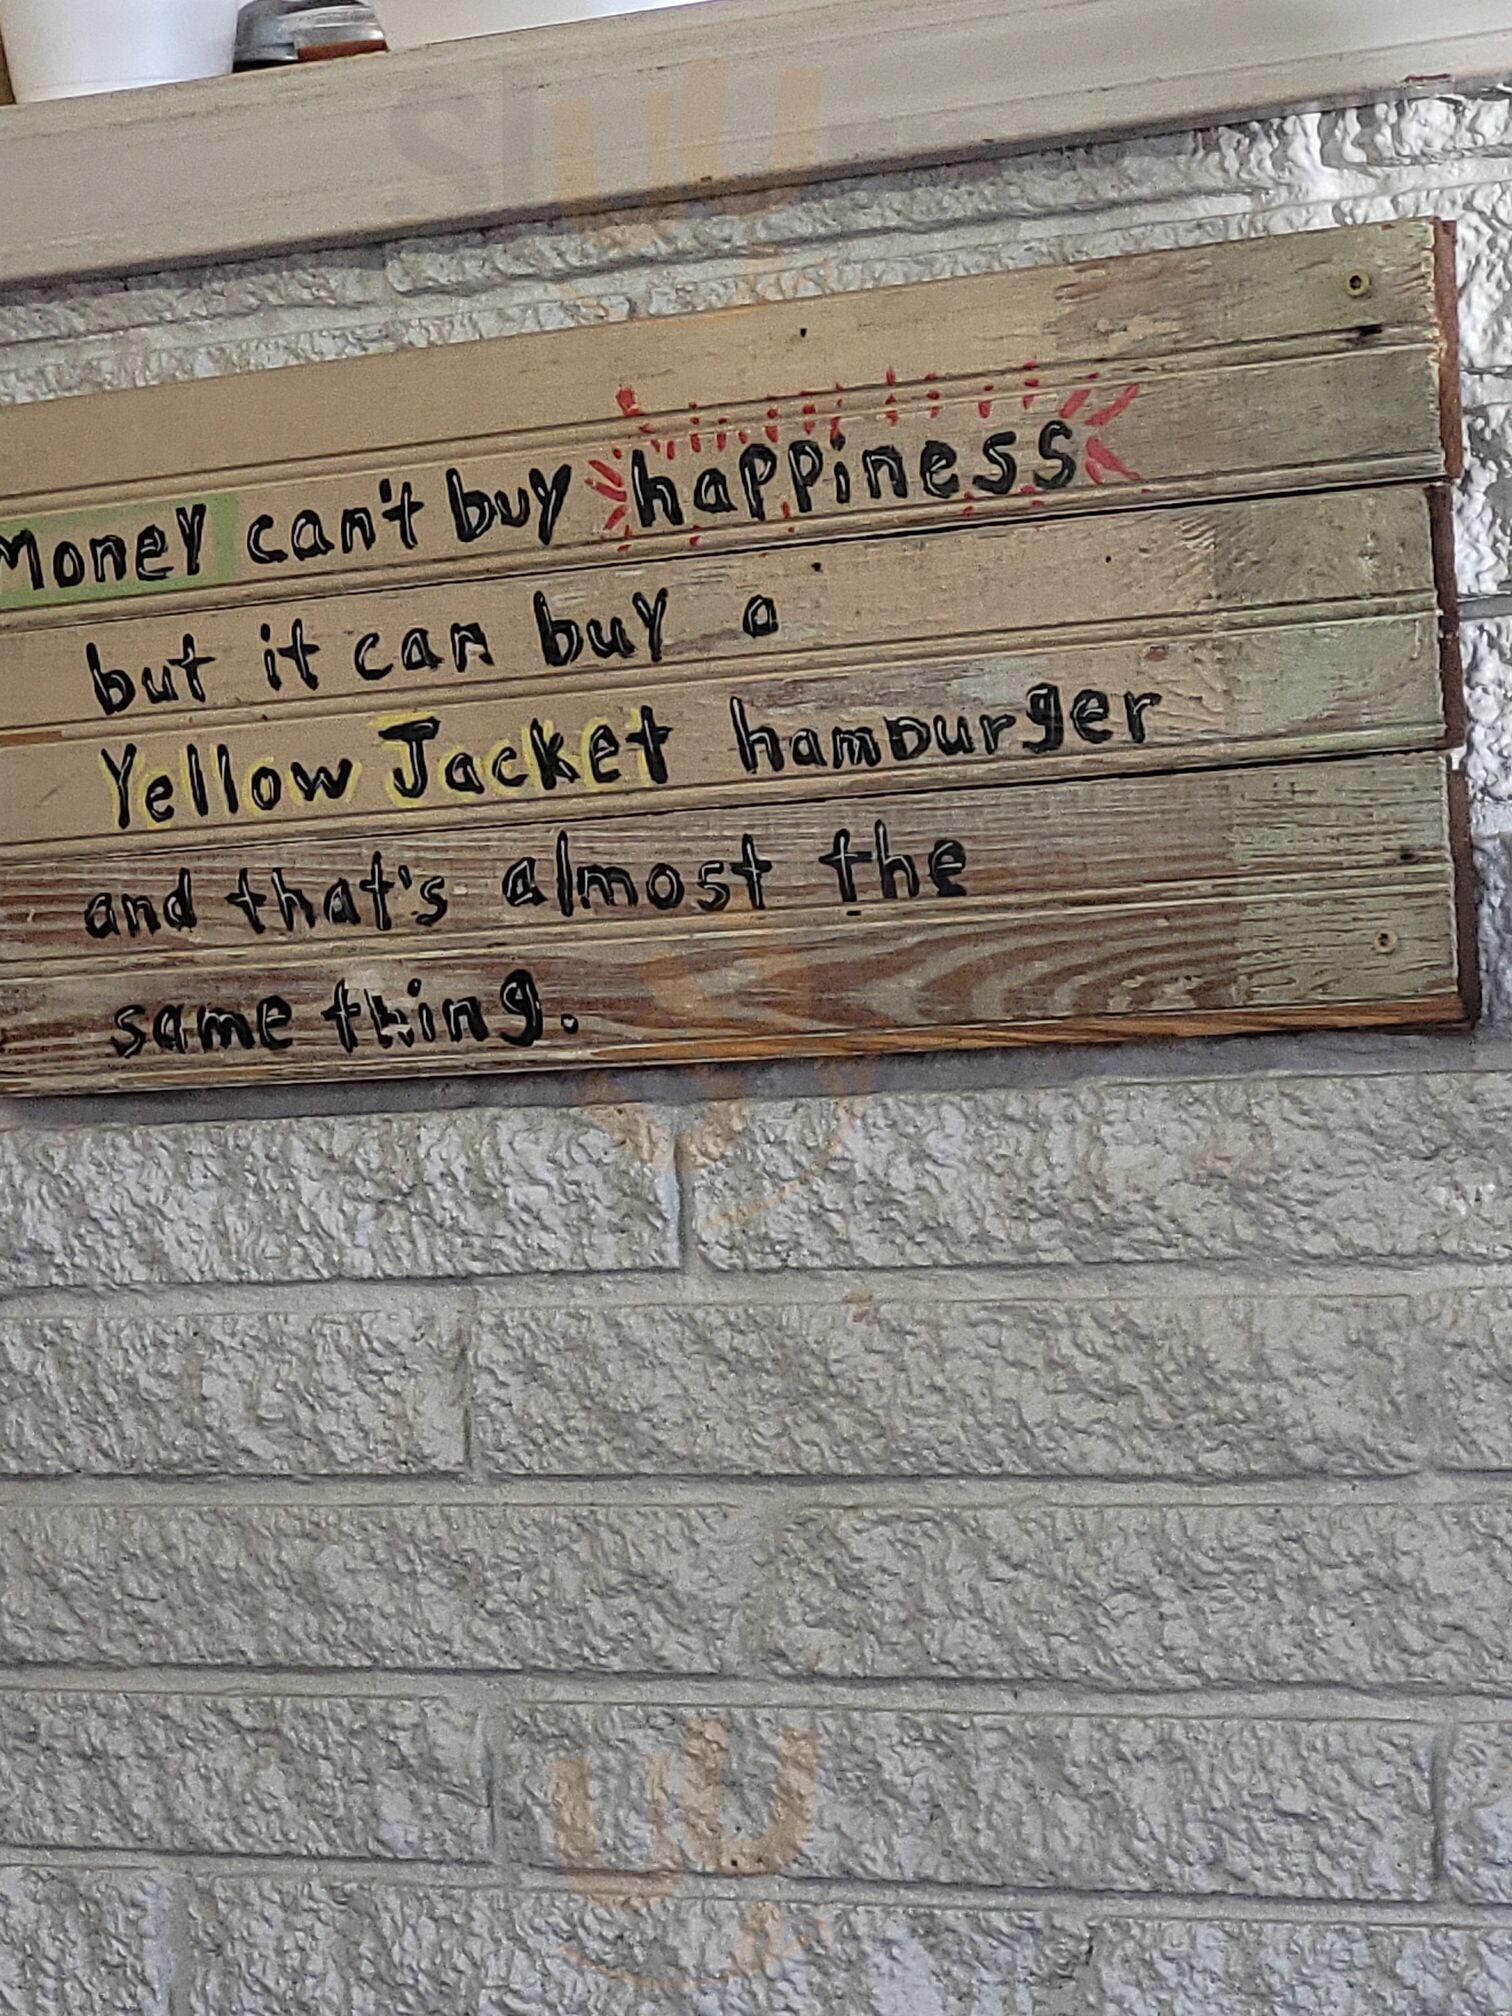 Money can't buy happiness
but it can buy a
Yellow Jacket hamburger
and that's almost the
same thing.